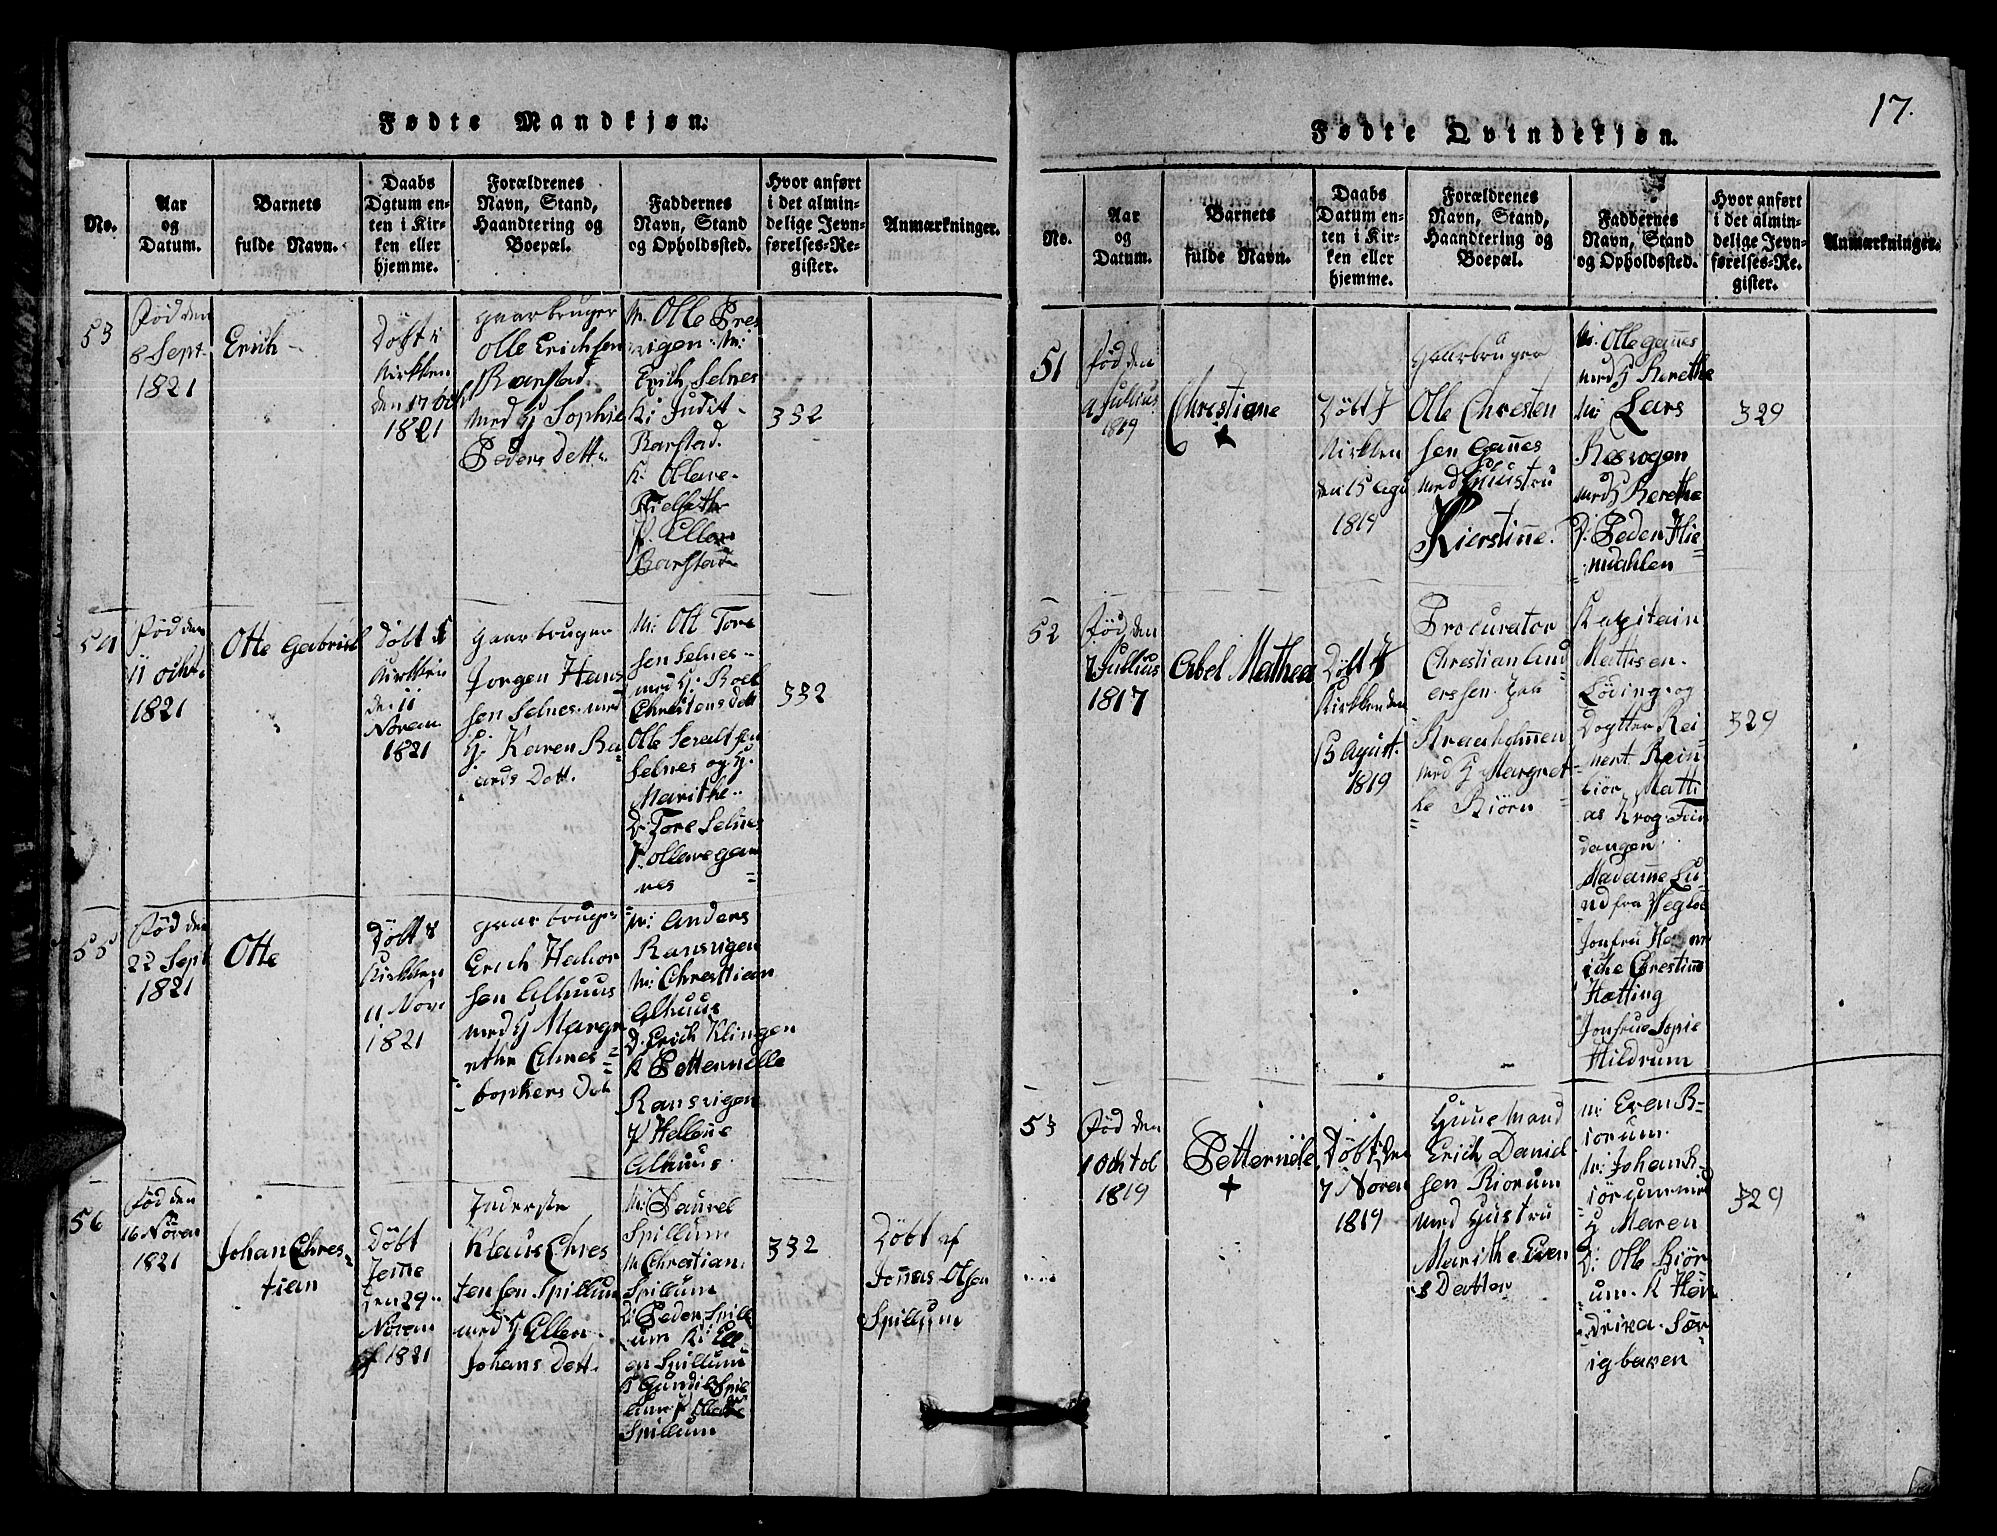 17.
Fødte Mandkjøn.
No.
Aar
og
Datum.
Barnets
fulde Navn.
Daabs
Dgtum en-
ten i Kir-
ken eller
hjemme.
Forældrenes
Navn, Stand,
Haandtering og
Boepæl.
Faddernes
Navn, Stand
og Opholdssted.
Hvor anført
i det almin-
delige Jevn-
førelses-Re-
gister.
Anmærkninger.
53
Fød den
8 Sept.
1821
Erich
Døbt i
Kirkken
den 17 Och
1821
gaarbruger
Olle Erichsen
Barstad
med H Sophie
Peders Dett.
M: Olle Pres
vigen. M:
Erich Selnes
K: Judit
Barstad.
K. Ollave
P. Ellen
Barstad
332
54
Fød den
11 ochr.
1821
Otte Gabriel
Døbt I
Kirkken
den 11
Novem
1821
gaarbruger
Jorgen Hans
sen Selnes med
H: Karen Ba
ards Dett.
M: Ott Tore
sen Selnes
med H. Roel
Christens dett
Olle Seraltsen
Selnes og H.
Marithe
D: Tore Selnes
P. ollave gan
nes
332
55
Fød den
22 Sept
1821
Otte
Døbt I
Kirkken
11 Nov.
1821
gaarbruger
Erich Halvor
sen Alhuus
med H Margr
ethe Elnes
bopkers Det
M: Anders
Ransvigen
M: Chresttian
Alhuus
D. Erich Klingen
K Petternelle
Ransvigen
P Hellene
Alhuus.
56
Fød den
16 Növem
1821
Johan Chres-
tian
Døbt
Jeme
den 29
Novem
af 1821
Inderste
Klaus Chres
tensen Spillum
med H Ellen
Johans Dett.
M: Paurel
Spillum
M Chrestian
Spillum
D: Peder Spill
um K: Ell
en Spillum
K Gundil Spil
lum P Ollave
Spillum
332
Døbt af
Jonas Olsen
Spillum
Fødte Qvindekjøn.
No.
Aar
og
Datum.
Barnets
fulde Navn.
Daabs
Datum en-
ten i Kir-
ken eller
hjemme.
Forældrenes
Navn, Stand,
Haandtering og
Boepæl.
Faddernes
Navn, Stand
og Opholdssted.
Hvor anført
i det almin-
delige Jevn-
førelses-Re-
gister.
Anmærkninger.
51
Fød den
9 Julius
1819
Chrestiane
Døbt I
Kirkken
den 15 Agu
1819
gaarbruger
Olle Chresten
sen Ganes
med Hustru
Kierstine.
M: Olle ganes
med H Berethe
M: Lars
Rosvogen
med H Berethe
D: Peden Hie
mdahlen
329
52
Fød den
7 Jullius
1817
Abel Mathea
Døbt I
Kirkken den
15 Agust.
1819
Procurator
Chrestian And
erssen
Kraaholmen
med H Margret
he Biörn
Kapitain
Mattisen
Löding og
Dogtter Rei
ment. Rein
biör Matti
as Krog
Madame Lu
nd fra
Jonfru
Chrestine
Hætting
Jonfrue Sopie
Hildrum
329
53
Fød den
1 Ochtob
1819
Petternële
Døbt den
7 Novem
1819
Huusmand
Erich Daniel
sen Biorum
med Hustru
Marithe Even
s Datter
M: Even B-
iorum.
M: Johan B
iörum med
H Maren
D: Olle Biör
um. K Hen
drixa Sör
igbaxen
329